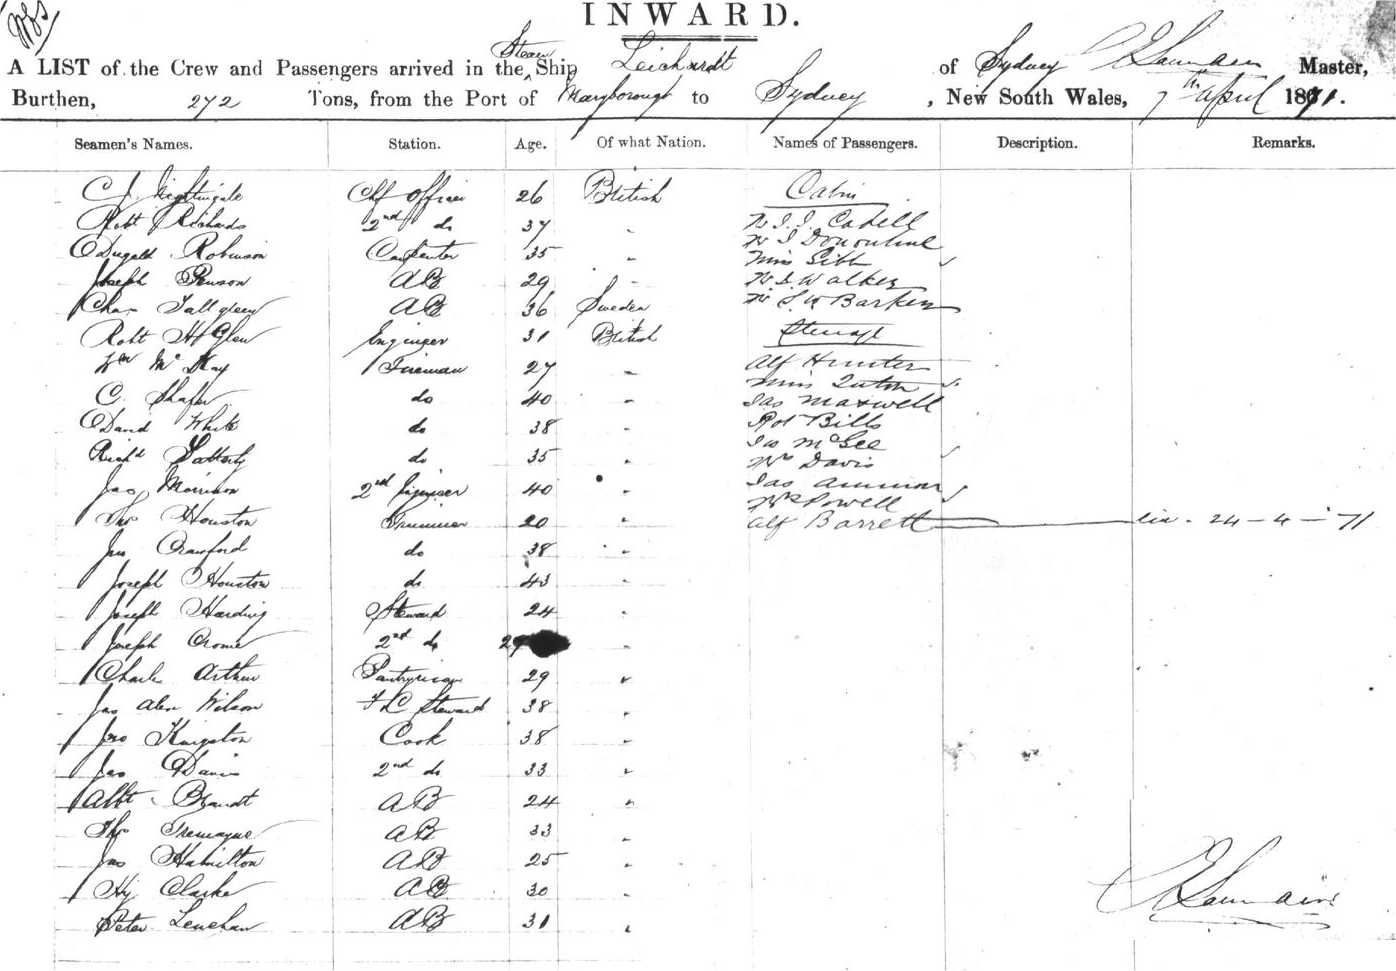 INWARD.
A LIST of the Crew and Passengers arrived in the Steam Ship Leichardt of Sydney Master,
Burthen, 272 Tons, from the Port of Maryborough to Sydney, New South Wales, 7th April 1871.
Seamen's Names. Station. Age. Of what Nation. Names of Passengers. Description. Remarks.
C J Nightingale Chf Officer 26 British Cabin
Robt Richards 2nd do 37 "
Dugald Robinson Carpenter 35 "
Joseph AB 29 "
Chas AB 36 Sweden
Robt Engineer 31 British
Wm McKay Fireman 27 "
C. Shafer do 40 "
David White do 38 "
Richd do 35 "
Jas Morrison 2nd Engineer 40 "
Thos Houston Trimmer 20 "
Jas Crawford do 38 "
Joseph Houston do 43 "
Joseph Harding Steward 24 "
Joseph Crome 2nd do 29 "
Charles Arthur Pantryman 29 "
Jas Alex Wilson Steward 38 "
Jno Kingston Cook 38 "
Jas Davis 2nd do 33 "
Albt Brandt AB 24 "
Thos Tremayne AB 33 "
Jas Hamilton AB 25 "
Hy Clarke AB 30 "
Peter Lenehan AB 31 "
Cahill
Miss Gibb
Walker
Barker
Steerage
Alf Hunter
Miss
Jas Maxwell
Robt Bills
Jas McGee
Mrs Davis
Jas
Powell
Alf Barrett 24-4-71